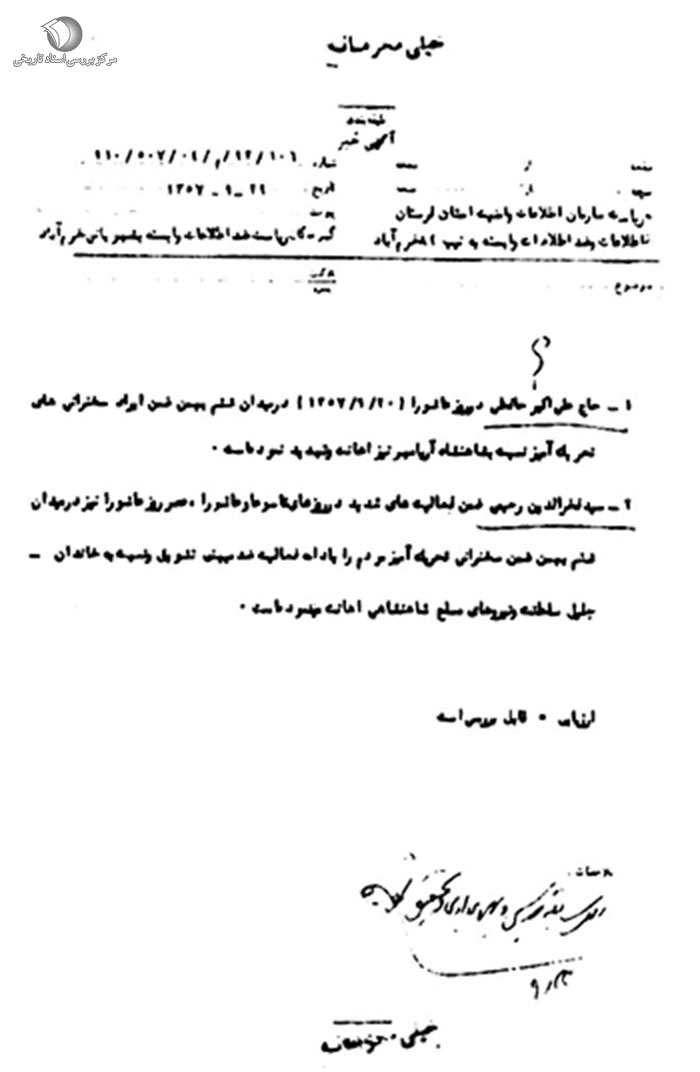 مرکز بررسی اسناد تاریخی
خیلی محرمانه
طبقه بندی
آگهی خبر
صفحه از صفحه شماره ۱۰۶ / ۹۲ / م / ۰۱ / ۵۰۷ / ۹۱۰
نسخه از نسخه تاریخ ۲۹ - ۹ - ۱۳۵۷
ریاست سازمان اطلاعات و امنیت استان لرستان پیوست
اطلاعات و ضد اطلاعات وابسته به تیپ خرم آباد ریاست ضد اطلاعات وابسته بشهربانی خرم آباد
موضوع
۱ - حاج علی اکبر در روز عاشورا ( ۱۳۵۷/۹/۲۰ ) در میدان ششم بهمن ضمن ایراد سخنرانی های
تحریک آمیز نسبت بشاهنشاه آریامهر نیز اهانت شدید نموده است .
۲ - سید فخرالدین رحیمی ضمن فعالیت های شدید در روزهای تاسوعا و عاشورا ، عصر روز عاشورا نیز در میدان
ششم بهمن ضمن سخنرانی تحریک آمیز مردم را بادامه فعالیت ضد میهنی تشویق و نسبت به خاندان -
جلیل سلطنت و نیروهای مسلح شاهنشاهی اهانت نموده است .
ارزیابی . قابل بررسی است
ملاحظات
خیلی محرمانه